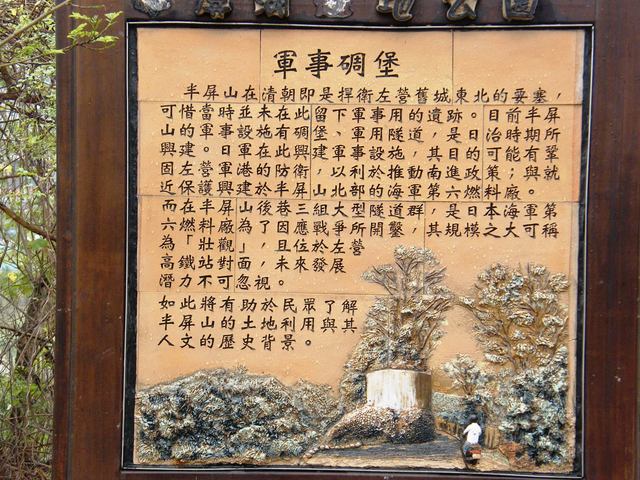 軍事碉堡
半屏山在清朝即是捍衛左營舊城東北的要塞，
可惜當時並未在此留下軍事用的遺跡。目前半屏
山的軍事設施有碉堡、軍用隧道，是日治時期所
興建。日軍在此興建軍事設施，其目的可能有鞏
固左營軍港的防衛，以利推動南進政策；與就
近保護興建於半屏山北部的海軍第六燃料廠。
而在半屏山後巷三組大型隧道群，是日本海軍第
六燃料廠為了因應戰爭所開鑿，其規模之大可稱
為「壯觀」且位於左營
高鐵站對面，未來發展
潛力不可忽視。
如此將有助於民眾了解
半屏山的土地利用與其
人文的歷史背景。